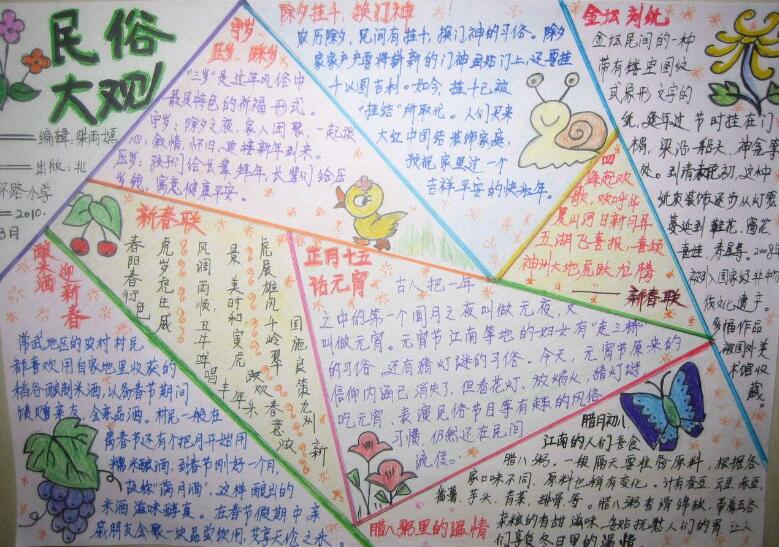 民俗
大观
编辑:柴雨嫣
出版:北
环路小学
2010.
守岁
压岁、踩岁
“三岁”是过年风俗中
最具特色的祈福形式。
守岁:除夕之夜,家人团聚,一起谈
心,叙情,怀旧,迎接新年到来。
压岁:孩子们给长辈拜年,长辈们给压
岁钱,寓意健康平安。
除夕挂千,换门神
农历除夕,民间有挂千,换门神的习俗。除夕
家家户户要将崭新的门神画贴门上,还要挂
千以图吉利。如今,挂千已被
“挂结”所取代。人们买来
大红中国结装饰家庭,
预祝家里过一个
吉祥平安的快乐年。
金坛刻纸
金坛民间的一种
带有镂空图纹
或象形文字的
纸,每年过节时挂在门
楣、梁沿、船头、神龛等
处。到清末民初,这种
纸质装饰逐步从灯笼
蔓延到鞋花、窗花、
喜娃、寿星等。2008年
被列入国家级非物
传文化遗产。
多幅作品
被国外美
术馆收
藏。
四
海起欢
歌,欢呼华
夏山河日新月异
五湖飞喜报,喜颂
神州大地虎跃龙腾
——新春联
新春联
春阳春行色
虎岁虎生威
风调雨顺,五年咩唱丰年乐
景美时和,寅虎欢歌春意浓
虎展雄风千岭翠
国施良策九州新
酿米酒
迎新春
常武地区的农村村民
都喜欢用自家地里收获的
稻谷酿制米酒,以备春节期间
馈赠亲友,全家品酒。村民一般在
离春节还有个把月开始用
糯米酿酒,到春节刚好一个月,
故称“满月酒”。这样酿出的
米酒滋味醇真。在春节假期中,亲
戚朋友会聚一块品尝饮用,共享天伦之乐。
正月十五
话元宵
古人把一年
之中的第一个圆月之夜叫做元夜,又
叫做元宵。元宵节江南等地的妇女有“走三桥”
的习俗,还有猜灯谜的习俗。今天,元宵节原来的
信仰内涵已消失了,但看花灯、放焰火、猜灯谜
吃元宵,表演民俗节目等有趣的风俗
习惯,仍然还在民间
流传。
腊八粥里的温情
腊月初八,
江南的人们喜食
腊八粥。一般隔天要准备原料,根据各
家口味不同,原料也稍有变化。计有蚕豆、豇豆、赤豆、
番薯、芋头、青菜、排骨等。腊八粥香滑绵软,带着五谷
杂粮的香甜滋味,熨贴抚慰人们的胃,让人
们享受冬日里的温情